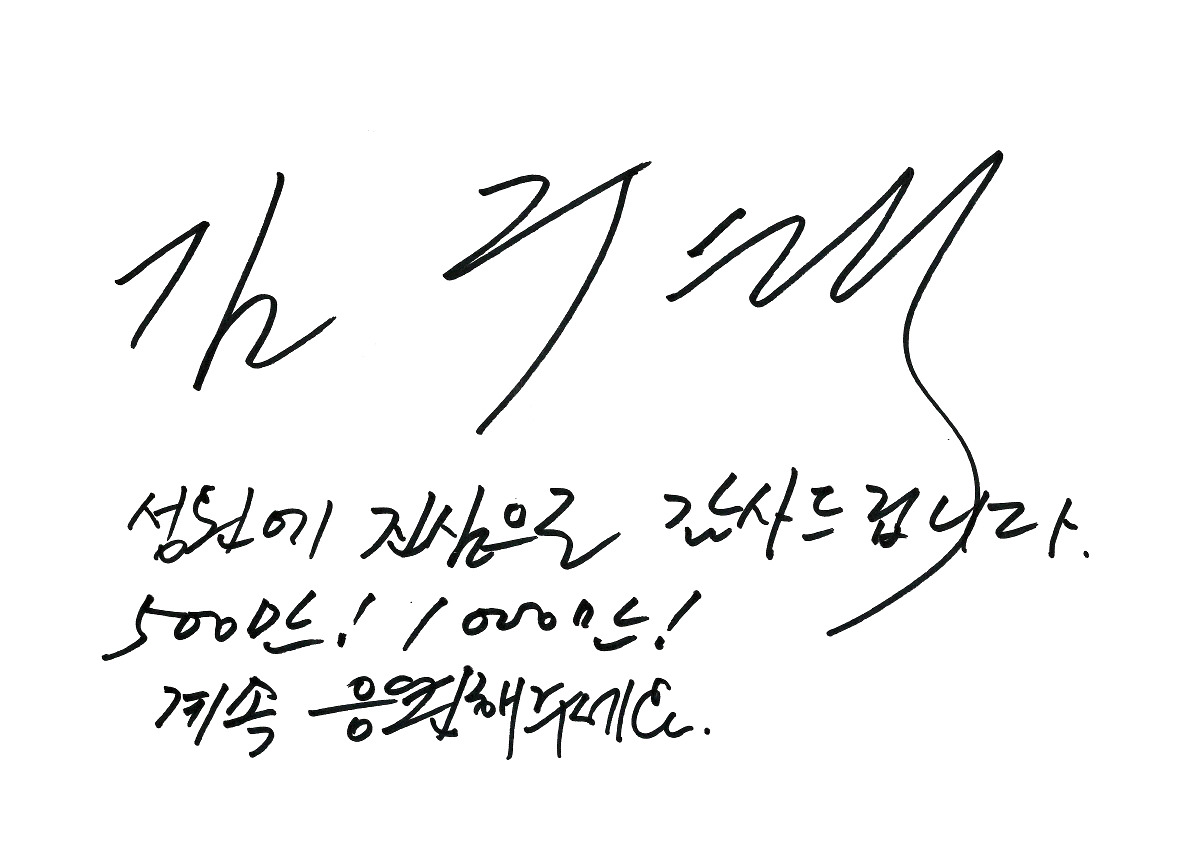 김
성원에 진심으로 감사드립니다.
500만! 1000만!
계속 응원해주세요.